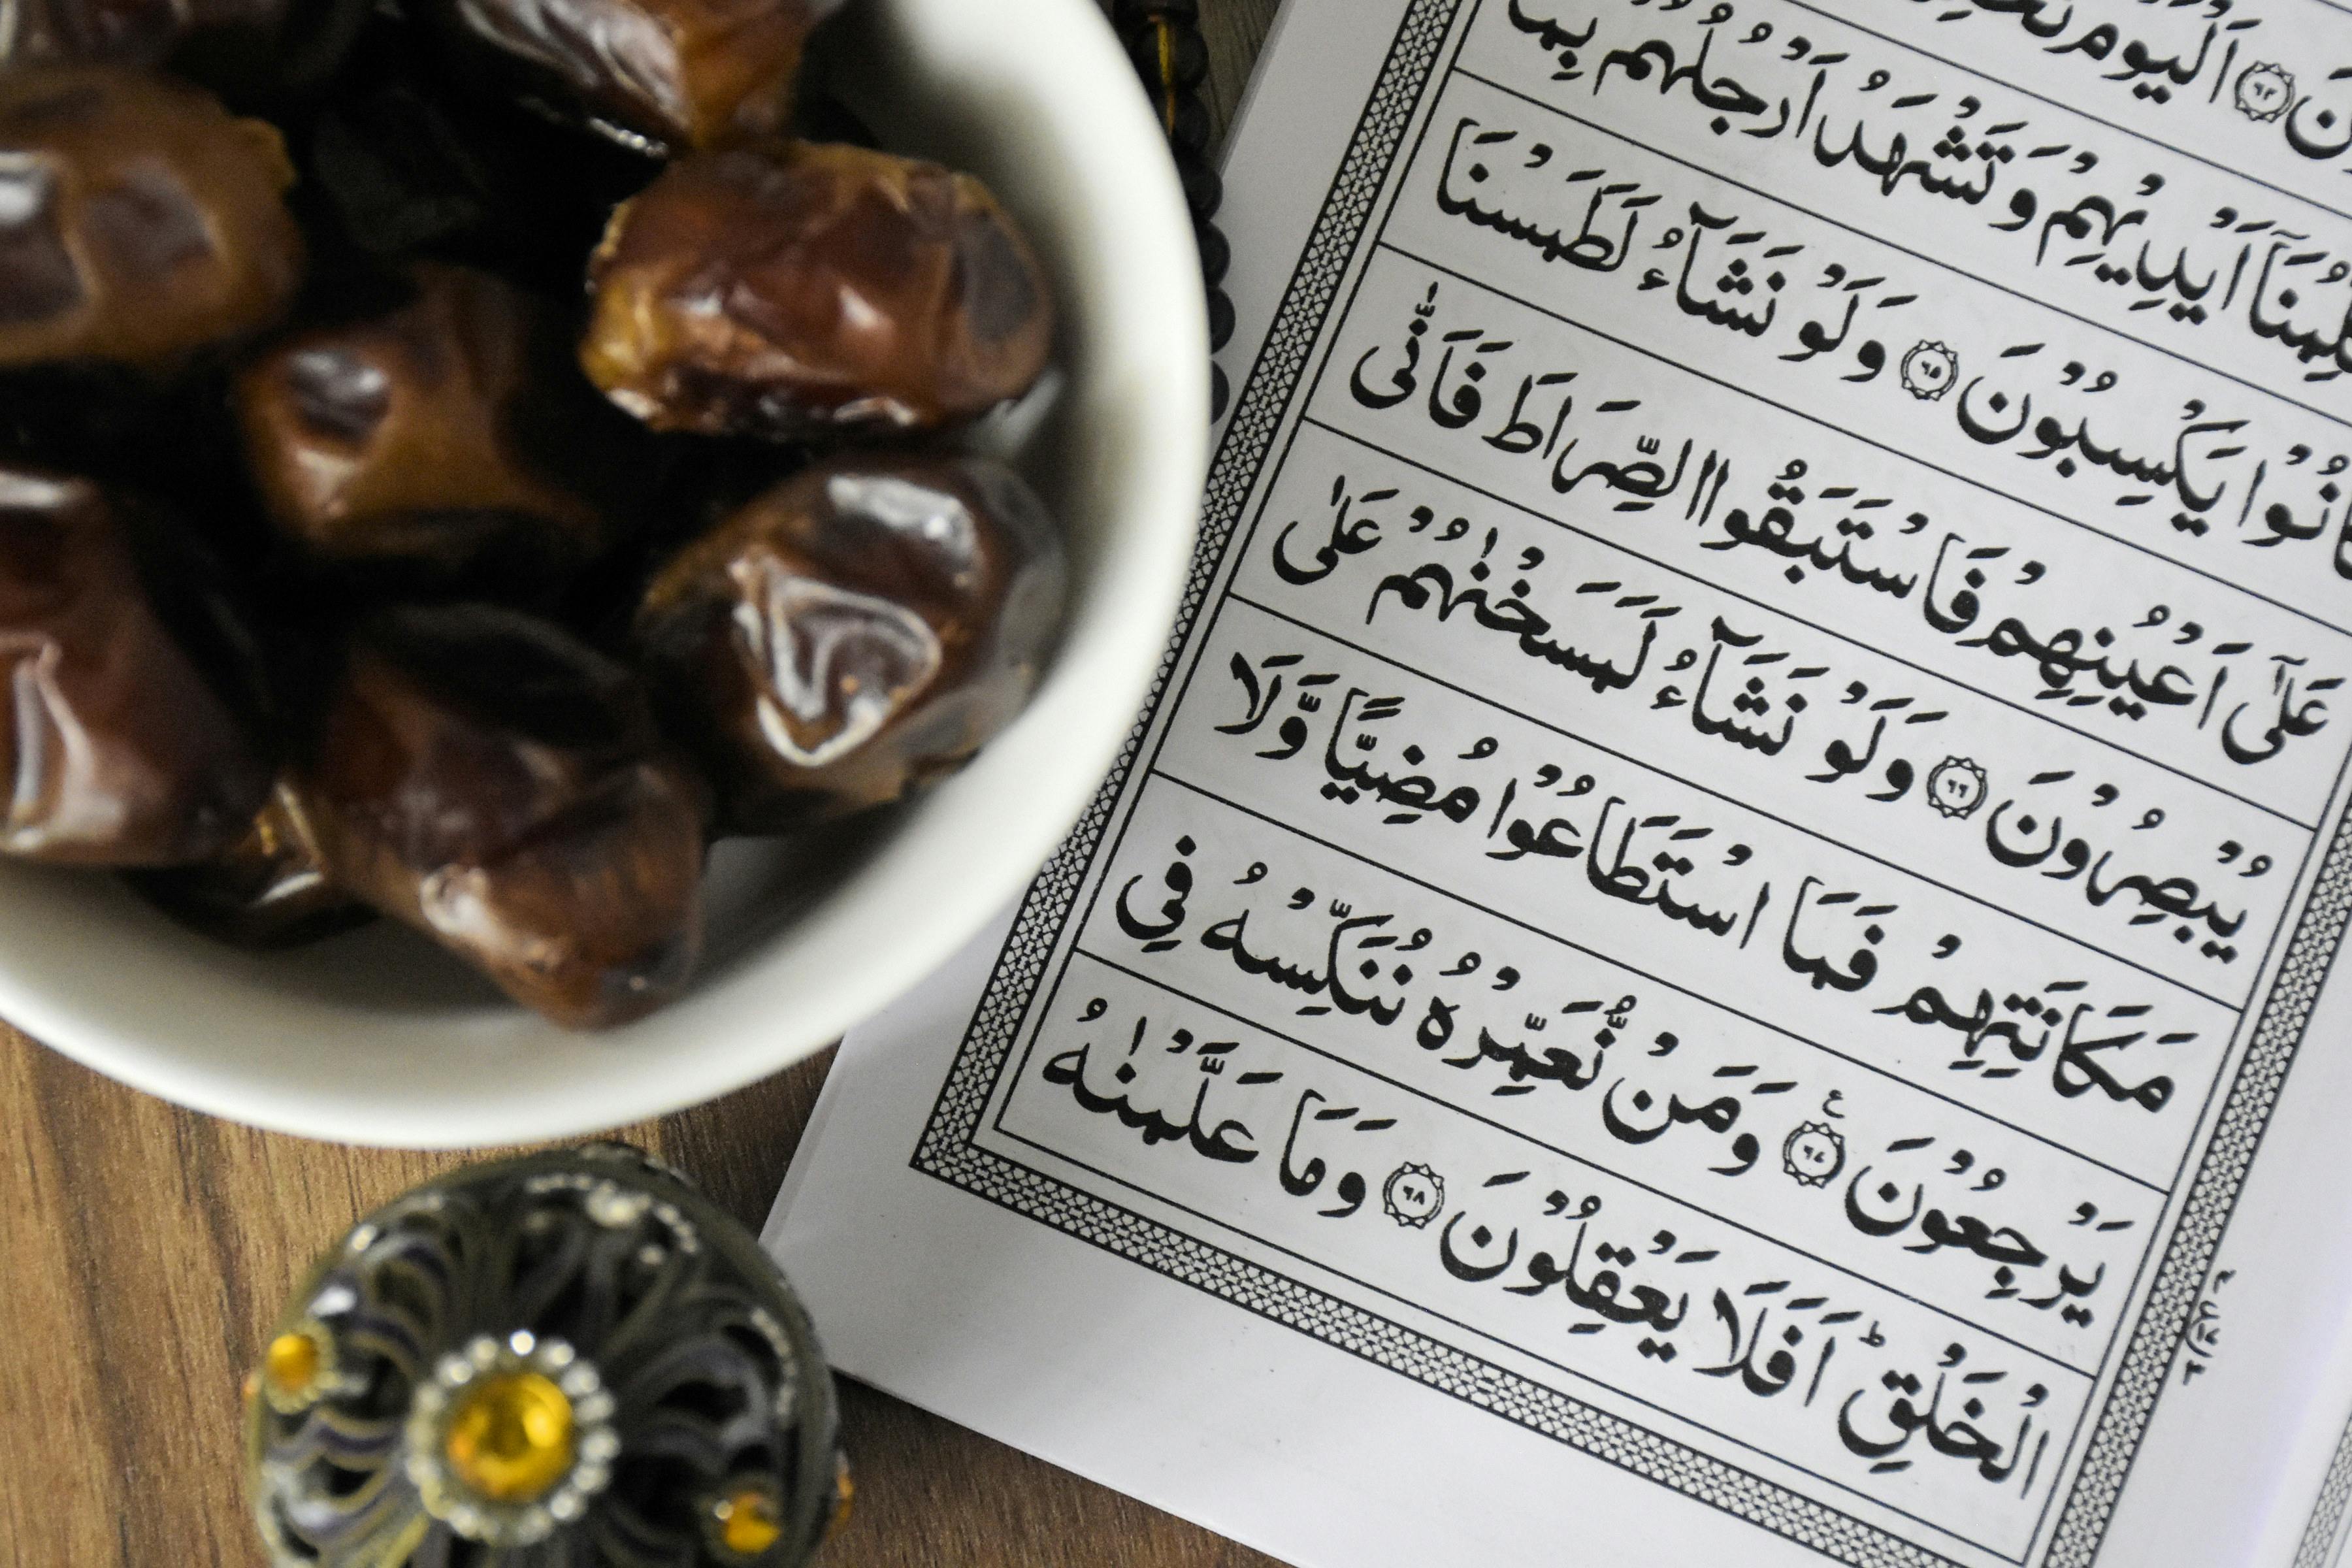 ٦٤ اَلْيَوْمَ
اَيْدِيْهِمْ وَتَشْهَدُ اَرْجُلُهُمْ بِمَا
كَانُوْا يَكْسِبُوْنَ ٦٥ وَلَوْ نَشَآءُ لَطَمَسْنَا
عَلٰٓى اَعْيُنِهِمْ فَاسْتَبَقُوا الصِّرَاطَ فَاَنّٰى
يُبْصِرُوْنَ ٦٦ وَلَوْ نَشَآءُ لَمَسَخْنٰهُمْ عَلٰى
مَكَانَتِهِمْ فَمَا اسْتَطَاعُوْا مُضِيًّا وَّلَا
يَرْجِعُوْنَ ٦٧ ع وَمَنْ نُّعَمِّرْهُ نُنَكِّسْهُ فِى
الْخَلْقِ ط اَفَلَا يَعْقِلُوْنَ ٦٨ وَمَا عَلَّمْنٰهُ